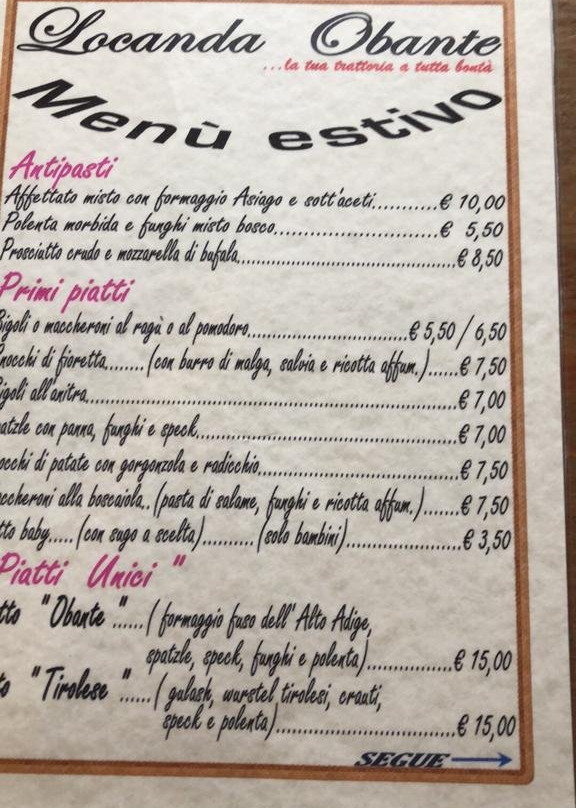 Locanda Obante
...la tua trattoria a tutta bontà
Menù estivo
Antipasti
Affettato misto con formaggio Asiago e sott'aceti...........€ 10,00
Polenta morbida e funghi misto bosco...........................€ 5,50
Prosciutto crudo e mozzarella di bufala....................................€ 8,50
Primi piatti
Bigoli o maccheroni al ragù o al pomodoro..........................€ 5,50 / 6,50
nocchi di fioretta........(con burro di malga, salvia e ricotta affum.)......€ 7,50
igoli all'anitra..............................................................€ 7,00
atzle con panna, funghi e speck...........................................€ 7,00
occhi di patate con gorgonzola e radicchio.................................€ 7,50
ccheroni alla boscaiola..(pasta di salame, funghi e ricotta affum.).......€ 7,50
tto baby.....(con sugo a scelta).........(solo bambini)...................€ 3,50
Piatti Unici "
tto "Obante "......( formaggio fuso dell'Alto Adige,
spatzle, speck, funghi e polenta)..............€ 15,00
o "Tirolese "......( gulash, wurstel tirolesi, crauti,
speck e polenta)..............................€ 15,00
SEGUE